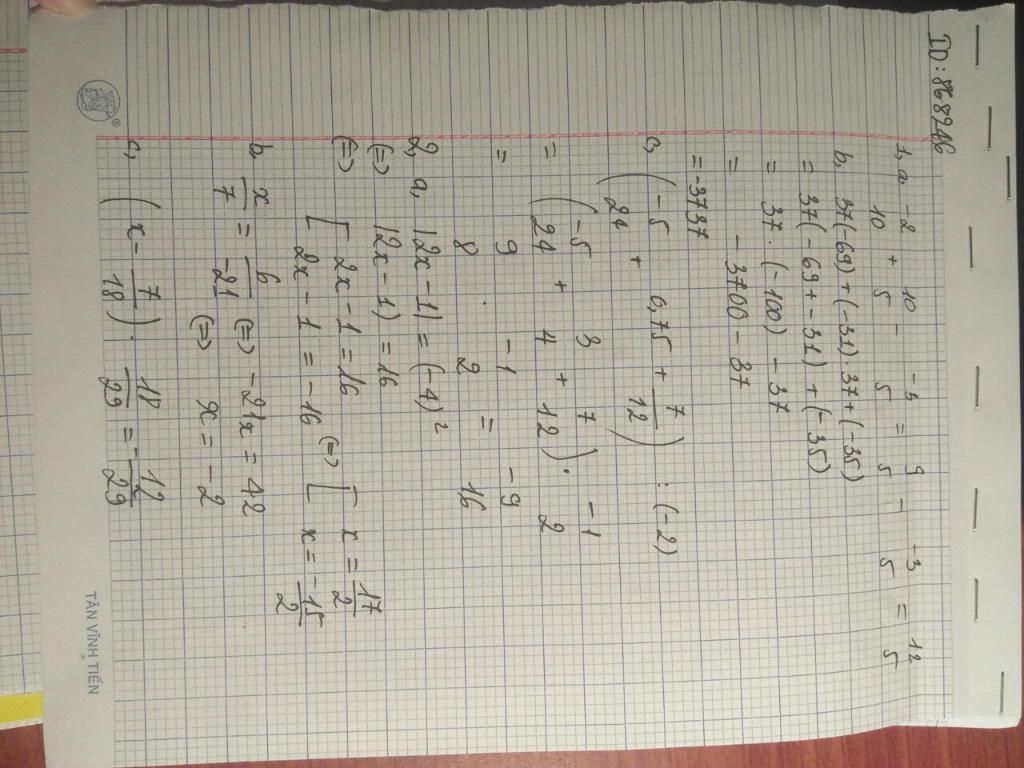 ID: 868246
1, a, -2/10 + 10/5 - -3/5 = 9/5 - -3/5 = 12/5
b, 37(-69) + (-31).37 + (-35)
= 37(-69 + -31) + (-35)
= 37.(-100) - 37
= -3700 - 37
= -3737
c, (-5/24 + 0,75 + 7/12) : (-2)
= (-5/24 + 3/4 + 7/12) . -1/2
= 9/8 . -1/2 = -9/16
2, a, |2x-1| = (-4)²
(=) |2x-1) = 16
(=) [ 2x-1 = 16 (=) [ x = 17/2
2x-1 = -16 x = -15/2
b, x/7 = 6/-21 (=) -21x = 42
(=) x = -2
c, (x - 7/18) . 18/29 = -12/29
TÂN VĨNH TIẾN